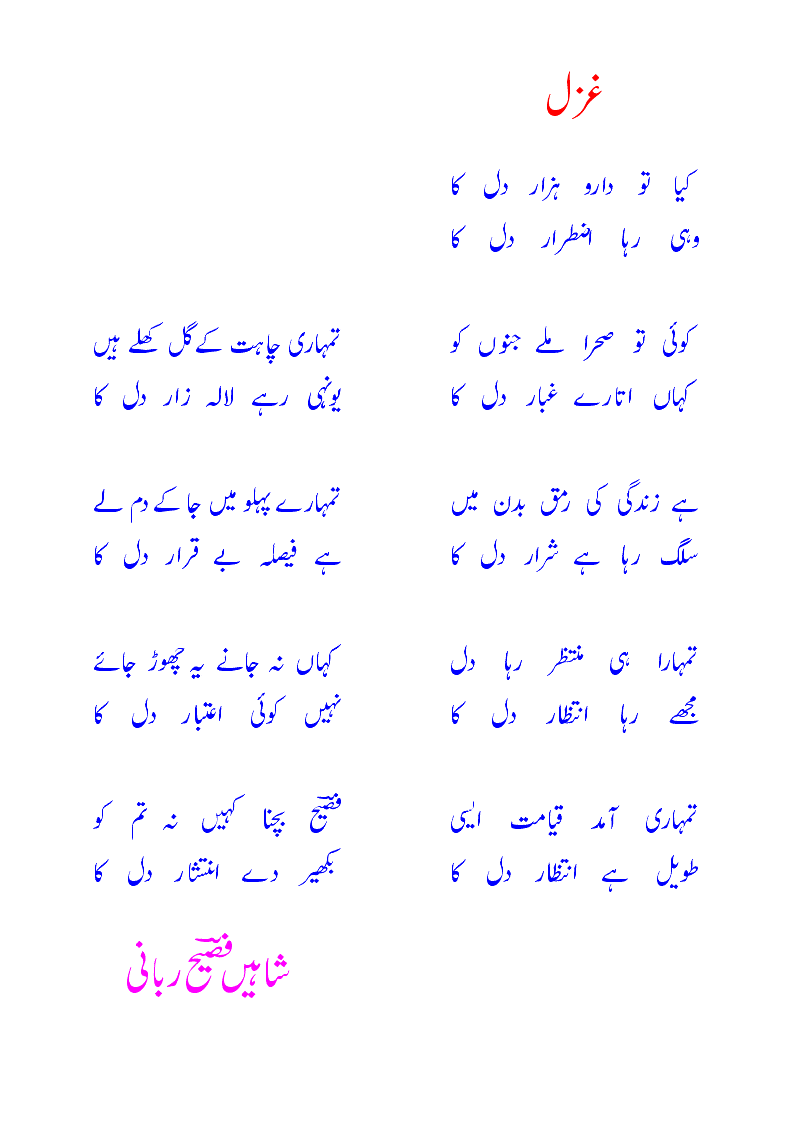 غزل
کیا تو دارو ہزار دل کا
وہی رہا اضطرار دل کا
کوئی تو صحرا ملے جنوں کو
کہاں اتارے غبار دل کا
ہے زندگی کی رمق بدن میں
سلگ رہا ہے شرار دل کا
تمہارا ہی منتظر رہا دل
مجھے رہا انتظار دل کا
تمہاری آمد قیامت ایسی
طویل ہے انتظار دل کا
تمہاری چاہت کے گل کھلے ہیں
یونہی رہے لالہ زار دل کا
تمہارے پہلو میں جا کے دم لے
ہے فیصلہ بے قرار دل کا
کہاں نہ جانے یہ چھوڑ جائے
نہیں کوئی اعتبار دل کا
فصیحؔ بچنا کہیں نہ تم کو
بکھیر دے انتشار دل کا
شاہیں فصیحؔ ربانی